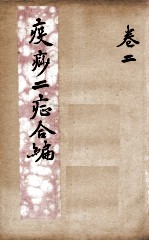 卷二
疫痧二症合編